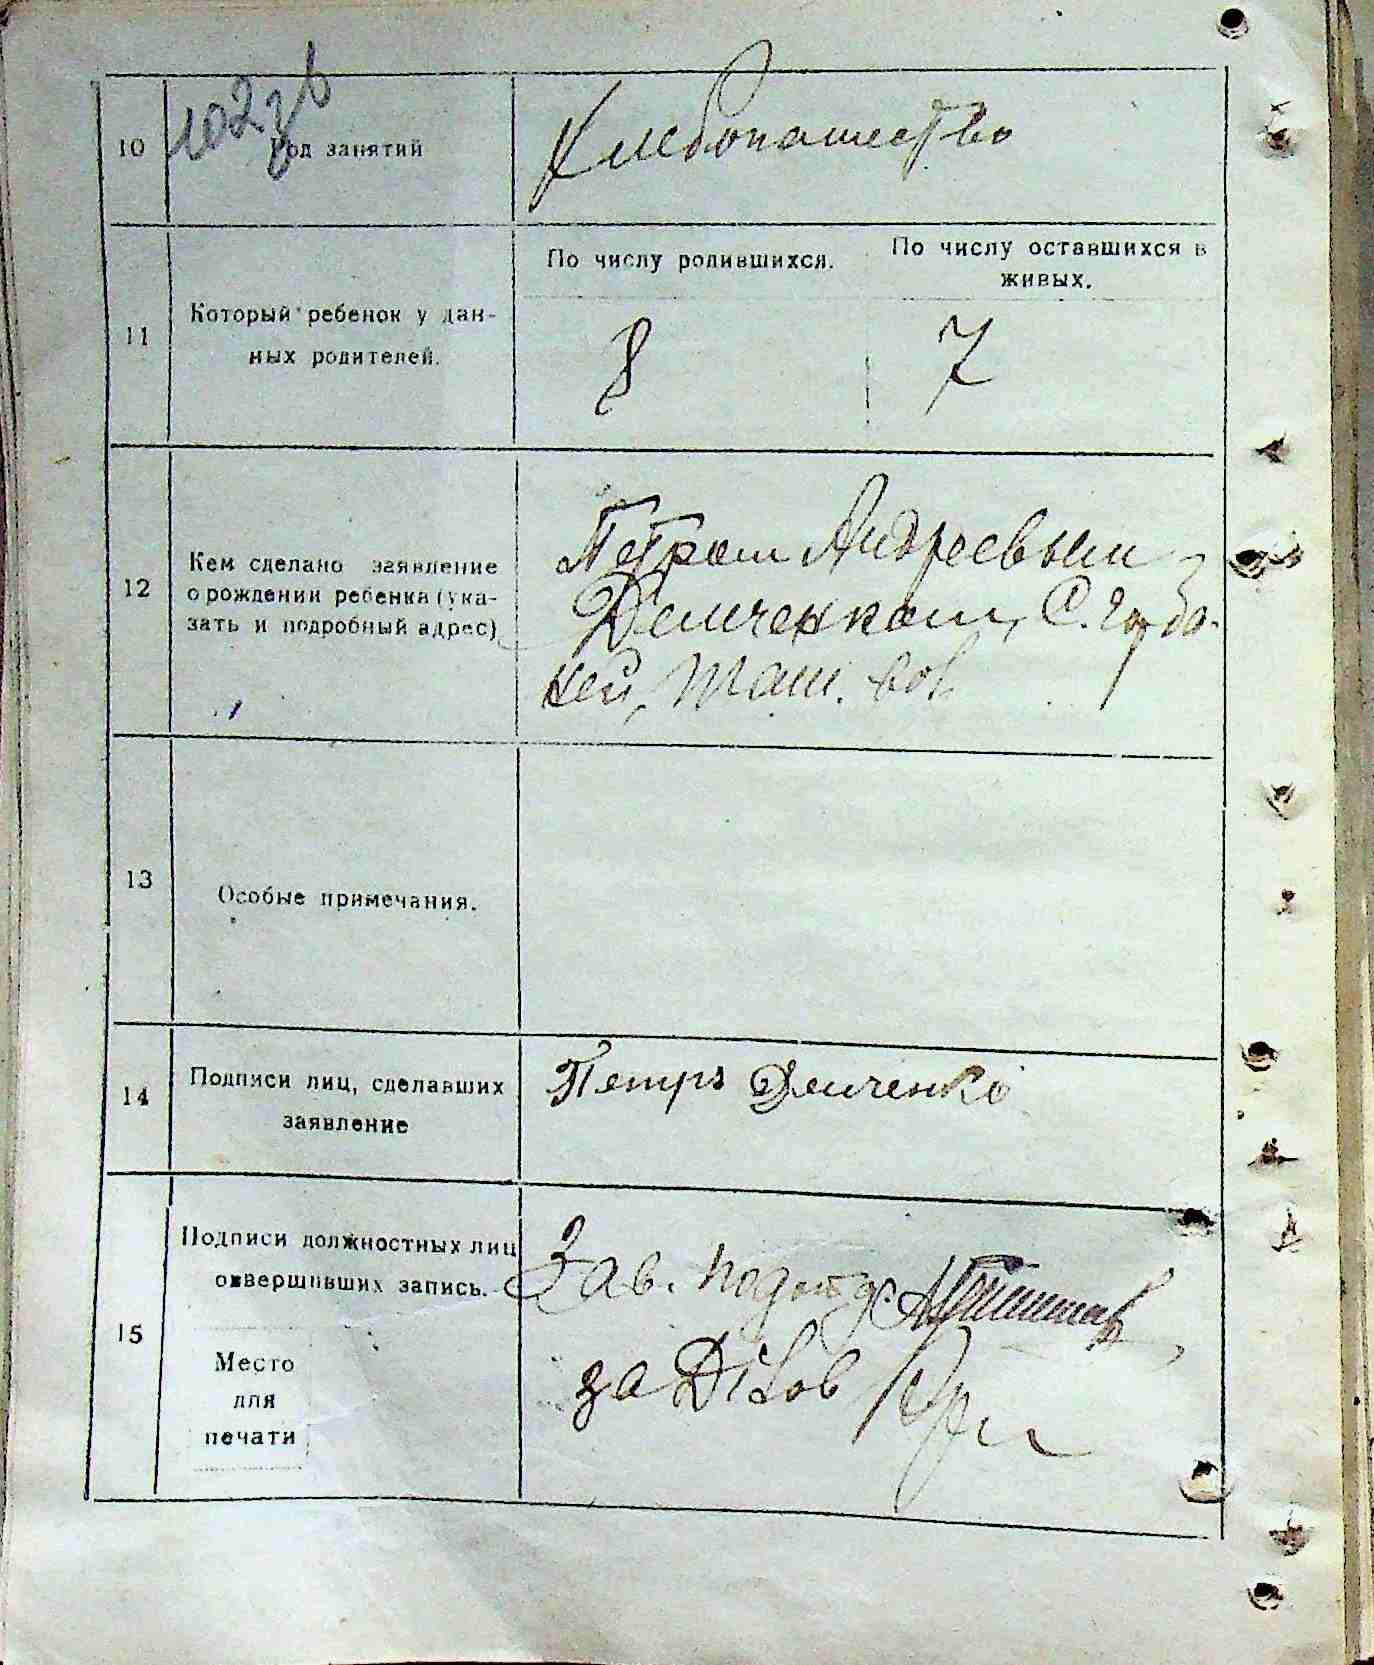 102 об
10
Род занятий
Хлебопашество
11
Который ребенок у дан-
ных родителей.
По числу родившихся.
По числу оставшихся в
живых.
8
7
12
Кем сделано заявление
о рождении ребенка (ука-
зать и подробный адрес)
Петром Андреевым
Демченком, С.
Таш. вол.
13
Особые примечания.
14
Подписи лиц, сделавших
заявление
Петръ Демченко
15
Подписи должностных лиц
совершивших запись.
Место
для
печати
Зав. подотд.
за